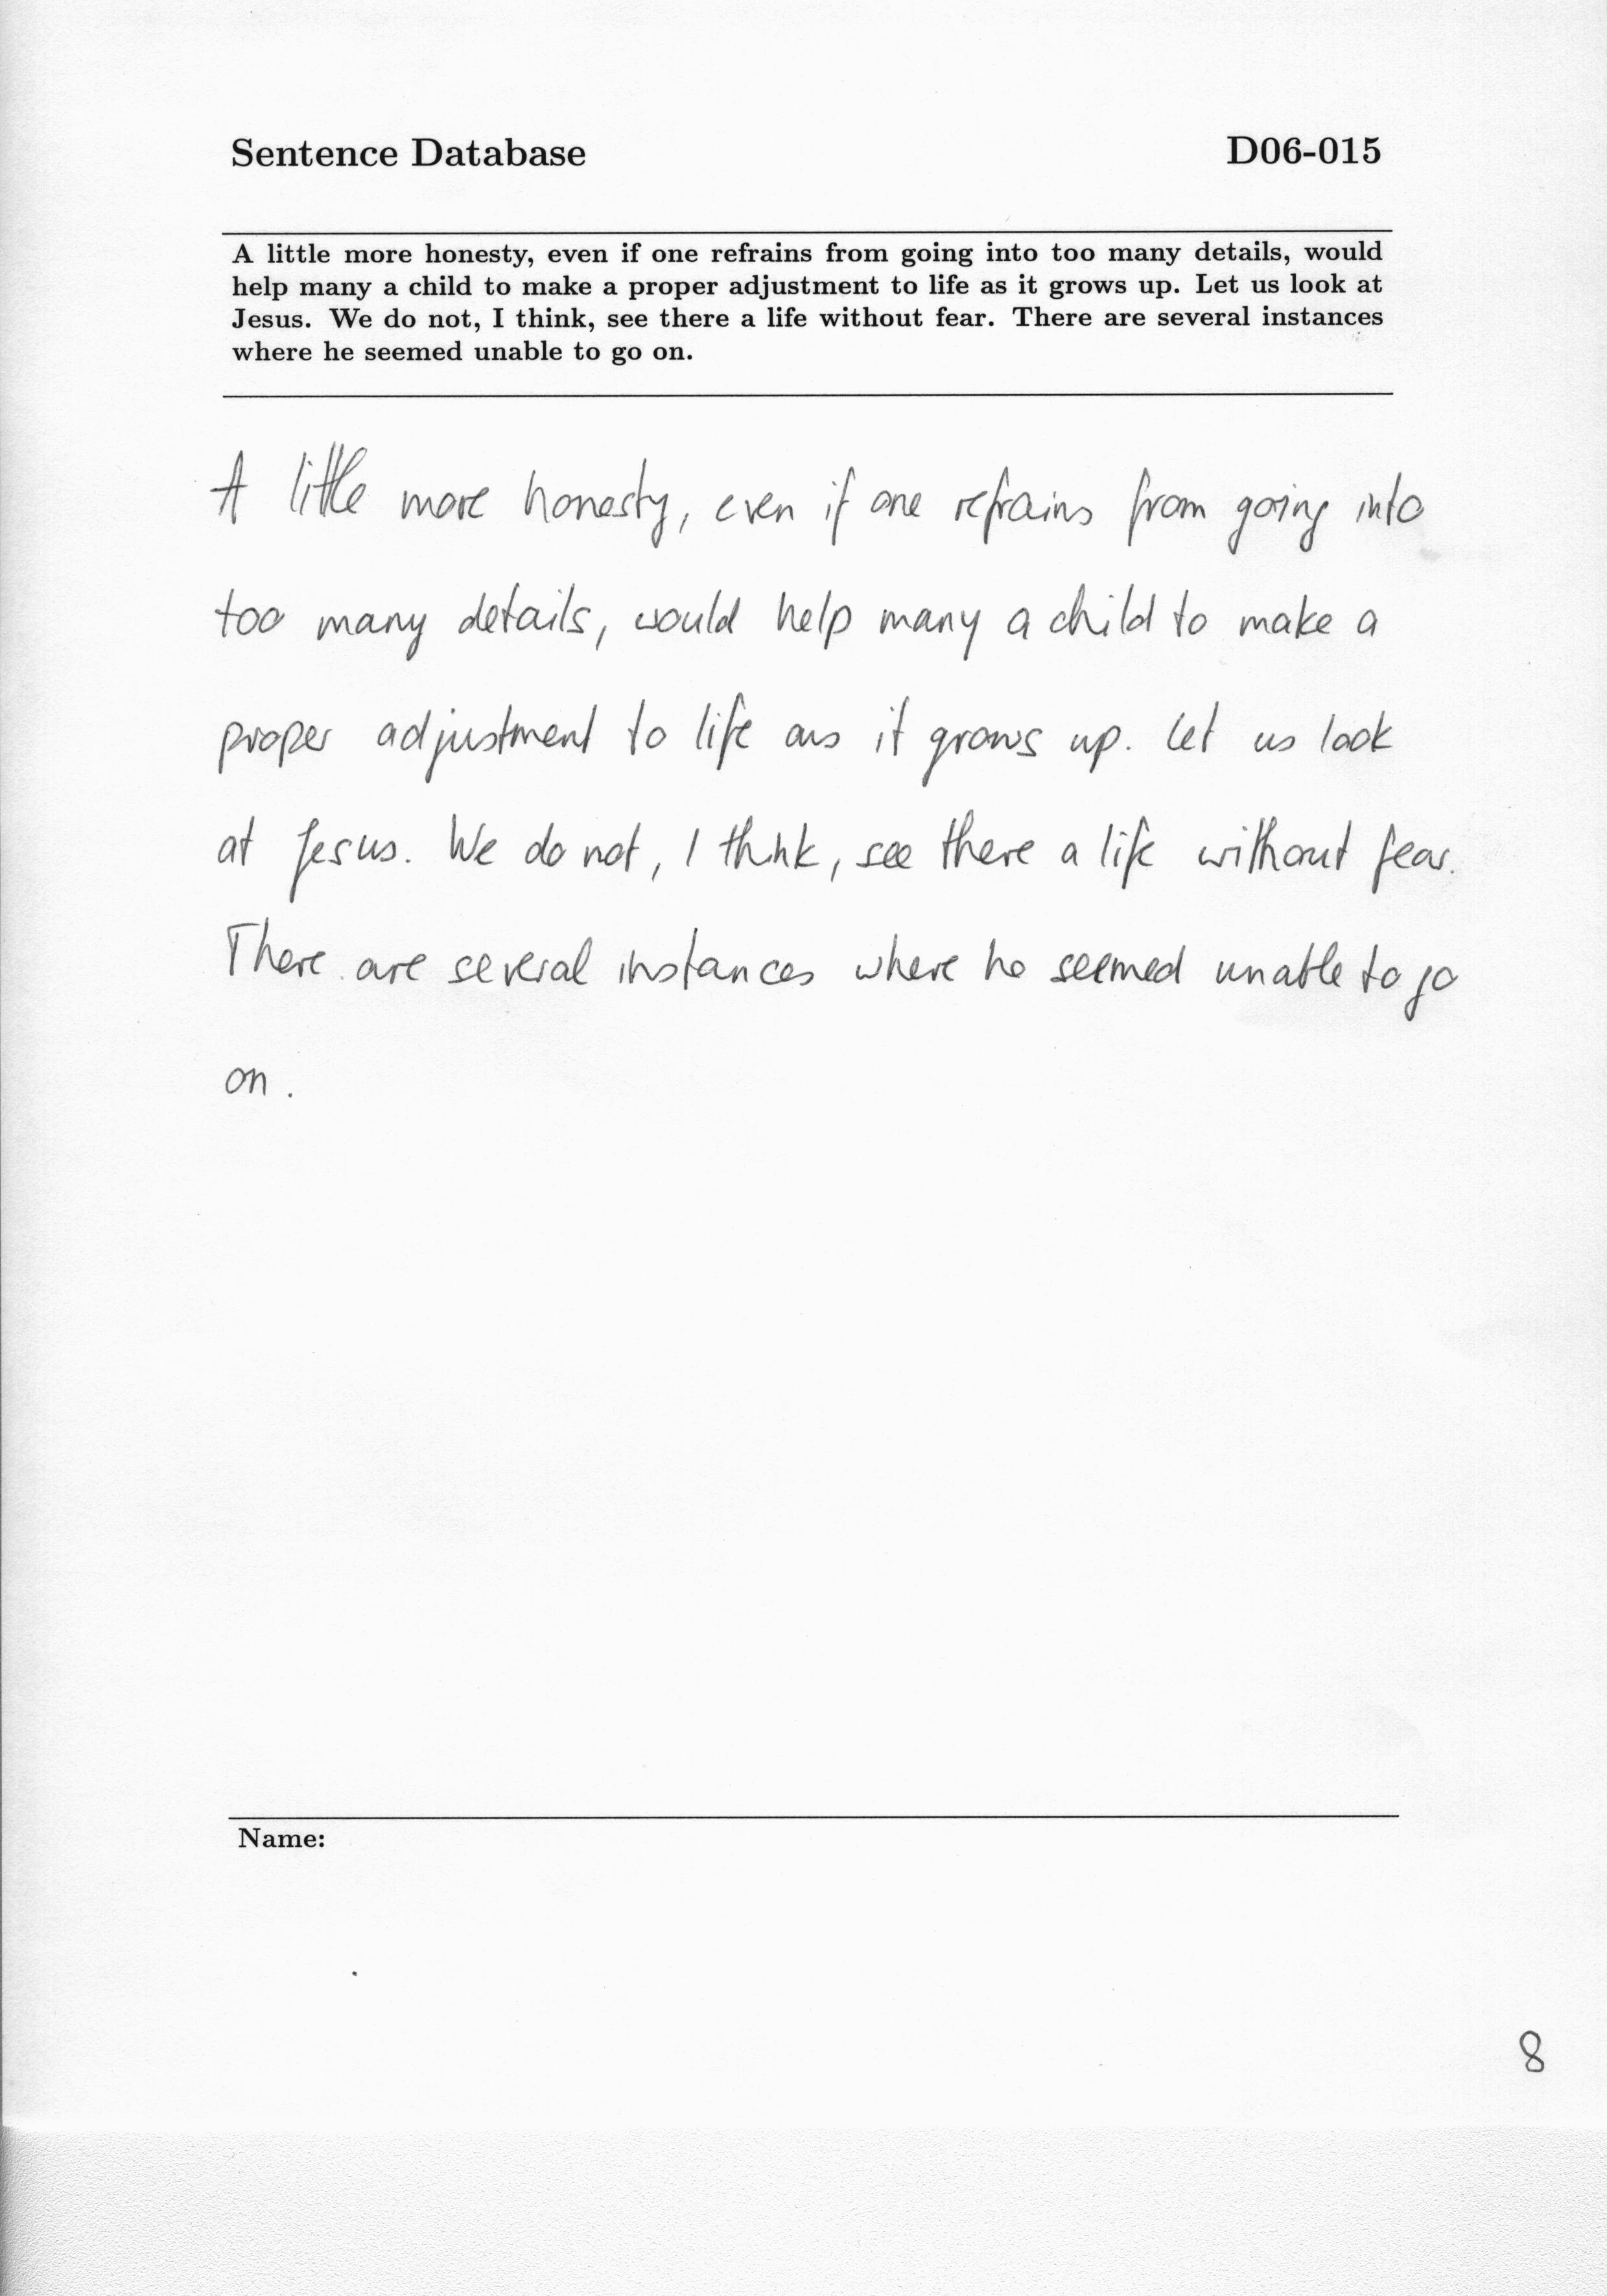 Sentence Database D06-015
A little more honesty, even if one refrains from going into too many details, would
help many a child to make a proper adjustment to life as it grows up. Let us look at
Jesus. We do not, I think, see there a life without fear. There are several instances
where he seemed unable to go on.
A little more honesty, even if one refrains from going into
too many details, would help many a child to make a
proper adjustment to life as it grows up. Let us look
at Jesus. We do not, I think, see there a life without fear.
There are several instances where he seemed unable to go
on.
Name:
8